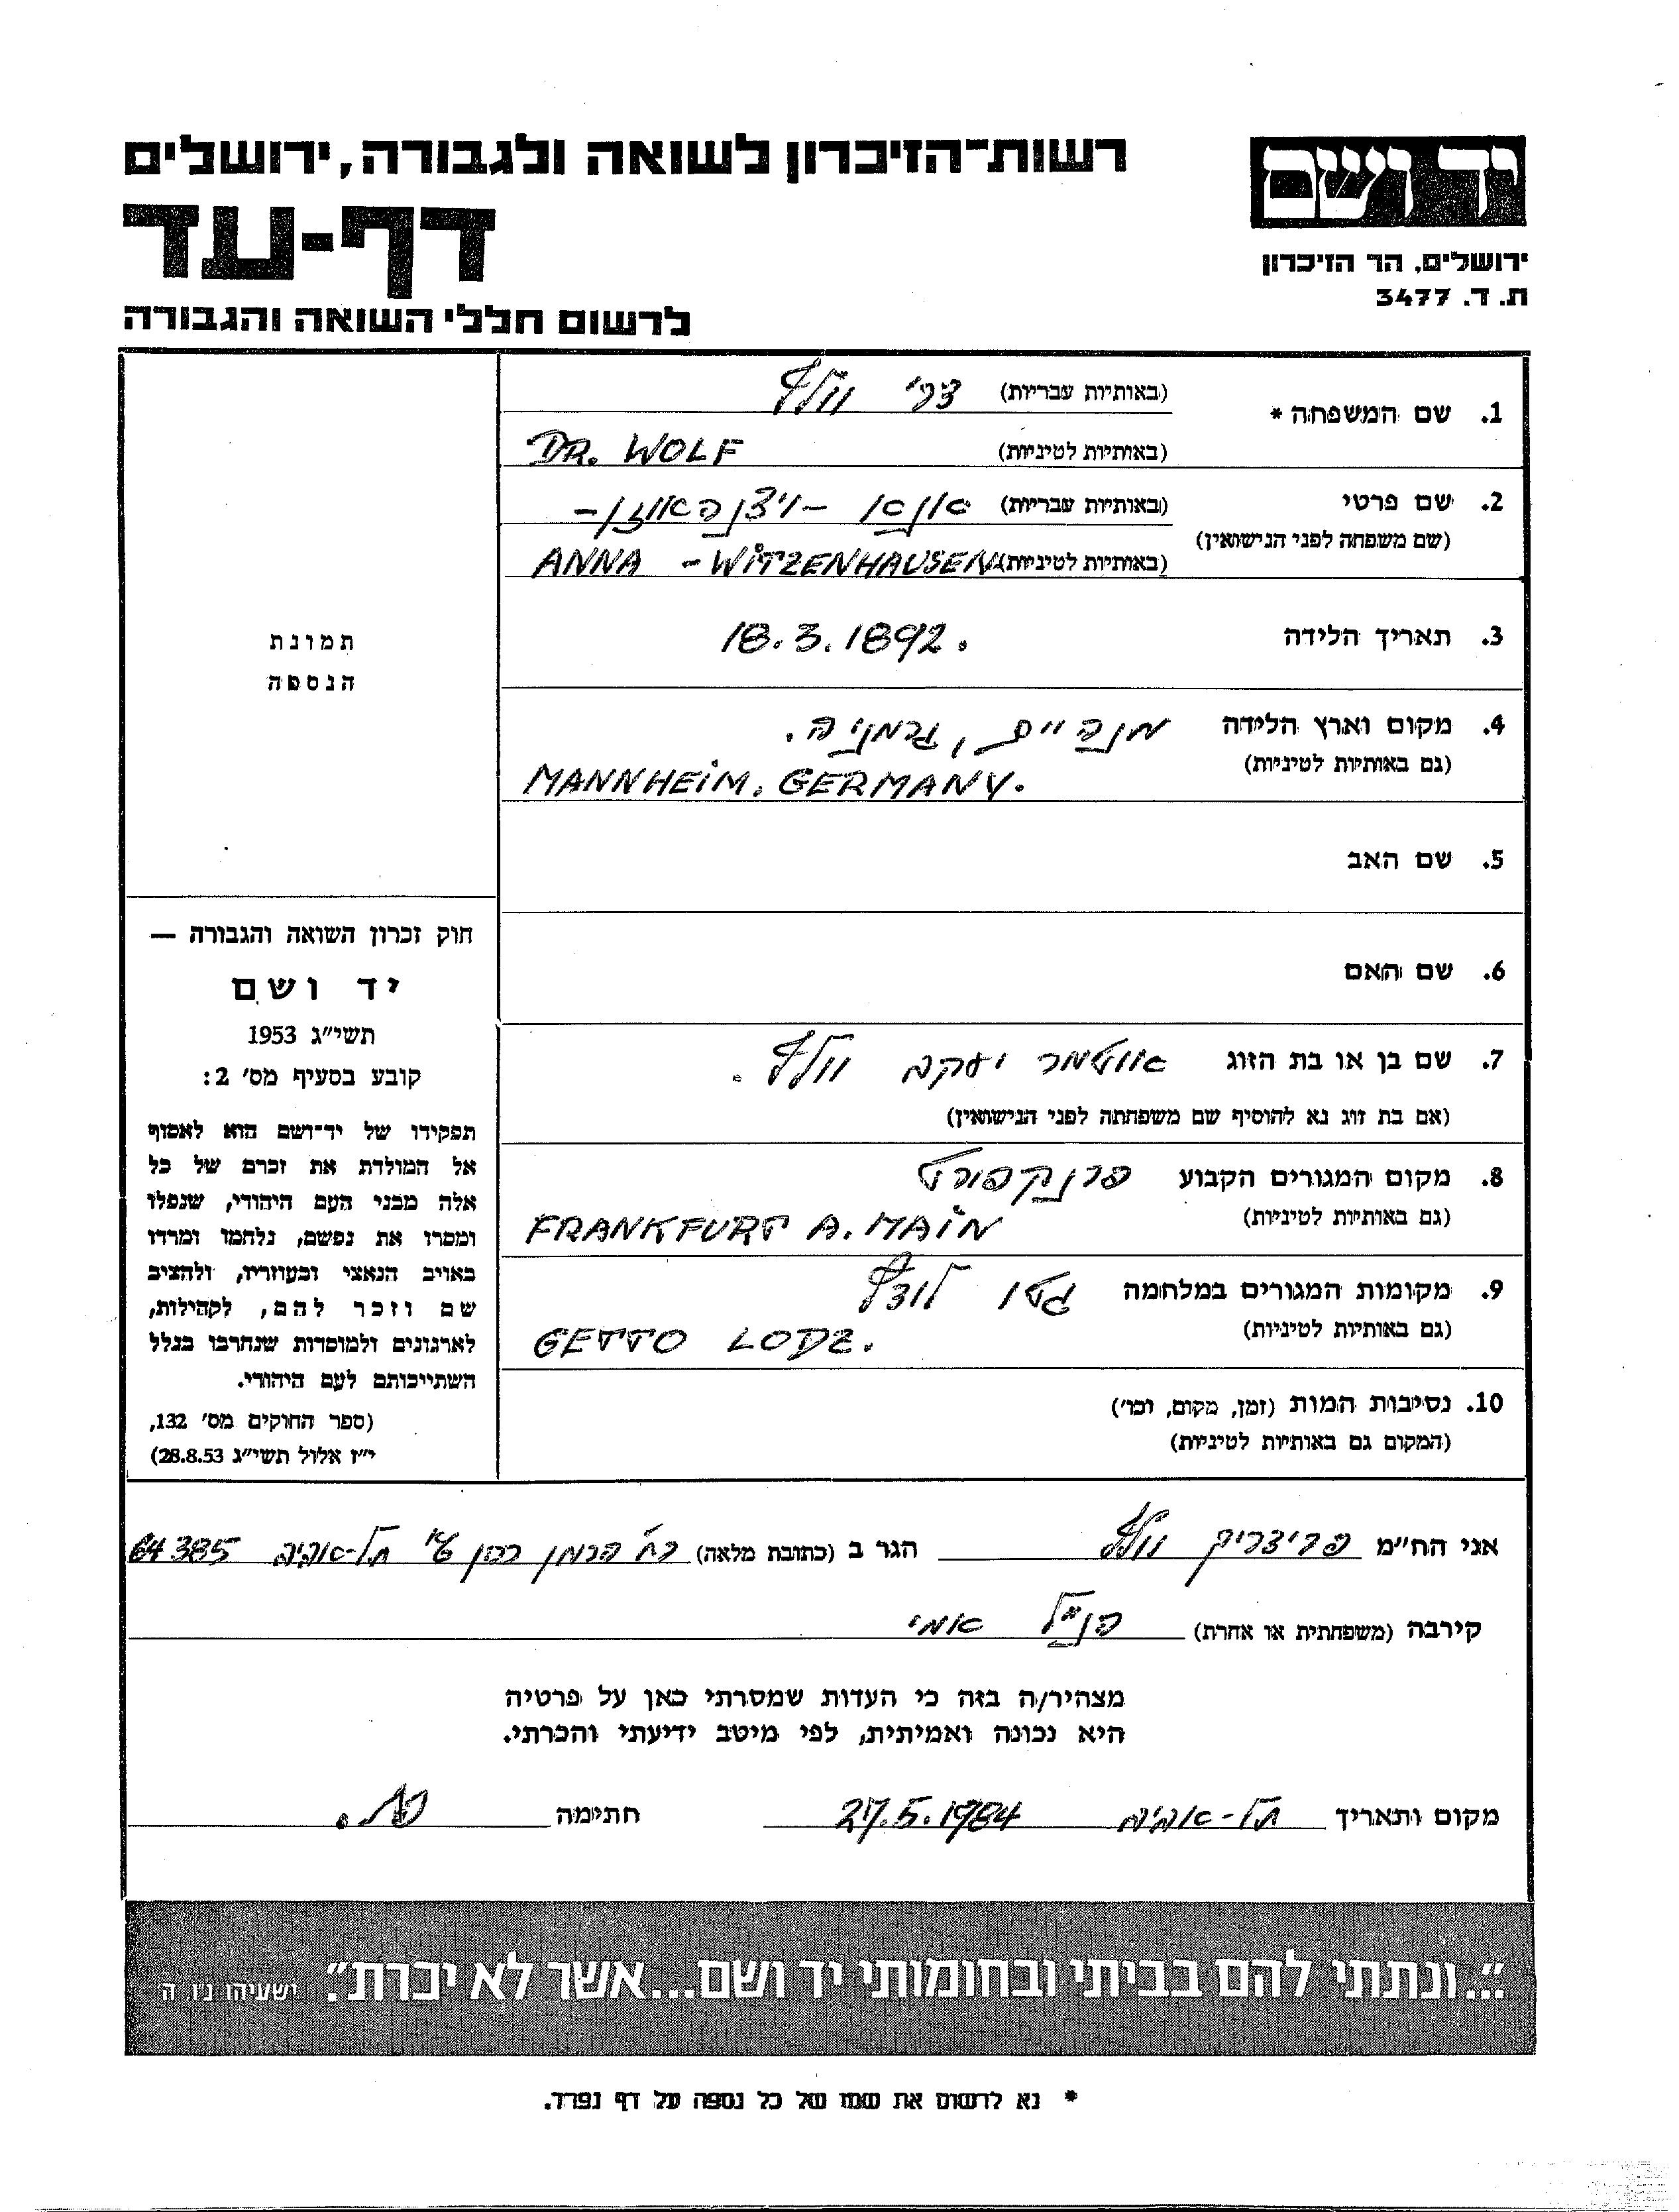 יד ושם
ירושלים, הר הזיכרון
ת. ד. 3477
רשות-הזיכרון לשואה ולגבורה, ירושלים
דף-עד
לרשום חללי השואה והגבורה
1. שם המשפחה *
(באותיות עבריות) וולף
(באותיות לטיניות) DR. WOLF
2. שם פרטי
(שם משפחה לפני הנישואין)
(באותיות עבריות) אנא - ויצנהאוזן -
(באותיות לטיניות) ANNA - WITZENHAUSEN
3. תאריך הלידה 18.3.1892.
4. מקום וארץ הלידה מנהיים, גרמניה.
(גם באותיות לטיניות) MANNHEIM. GERMANY.
5. שם האב
6. שם האם
7. שם בן או בת הזוג אוטמר יעקב וולף.
(אם בת זוג נא להוסיף שם משפחתה לפני הנישואין)
8. מקום המגורים הקבוע פרנקפורט
(גם באותיות לטיניות) FRANKFURT A. MAIN
9. מקומות המגורים במלחמה גטו לודז'
(גם באותיות לטיניות) GETTO LODZ.
10. נסיבות המות (זמן, מקום, וכו')
(המקום גם באותיות לטיניות)
תמונת
הנספה
חוק זכרון השואה והגבורה —
יד ושם
תשי״ג 1953
קובע בסעיף מס' 2:
תפקידו של יד-ושם הוא לאסוף
אל המולדת את זכרם של כל
אלה מבני העם היהודי, שנפלו
ומסרו את נפשם, נלחמו ומרדו
באויב הנאצי ובעוזריו, ולהציב
שם וזכר להם, לקהילות,
לארגונים ולמוסדות שנחרבו בגלל
השתייכותם לעם היהודי.
(ספר החוקים מס' 132,
י״ז אלול תשי״ג 28.8.53)
אני הח״מ פרידריך וולף הגר ב (כתובת מלאה) רח' הרמן כהן תל-אביב 64385
קירבה (משפחתית או אחרת) הנ״ל אמי
מצהיר/ה בזה כי העדות שמסרתי כאן על פרטיה
היא נכונה ואמיתית, לפי מיטב ידיעתי והכרתי.
מקום ותאריך תל-אביב 27.5.1984 חתימה
״...ונתתי להם בביתי ובחומותי יד ושם...אשר לא יכרת״. ישעיהו נ״ו ה
* נא לרשום את שמו של כל נספה על דף נפרד.